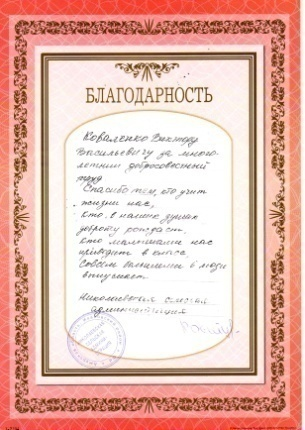 БЛАГОДАРНОСТЬ
Коваленко Виктору
Васильевичу за много-
летний добросовестный
труд
Спасибо тем, кто учит
жизни нас,
кто в наших душах
доброту рождает.
кто малышами нас
приводит в класс,
Совсем большими в люди
выпускает.
Николаевская сельская
администрация